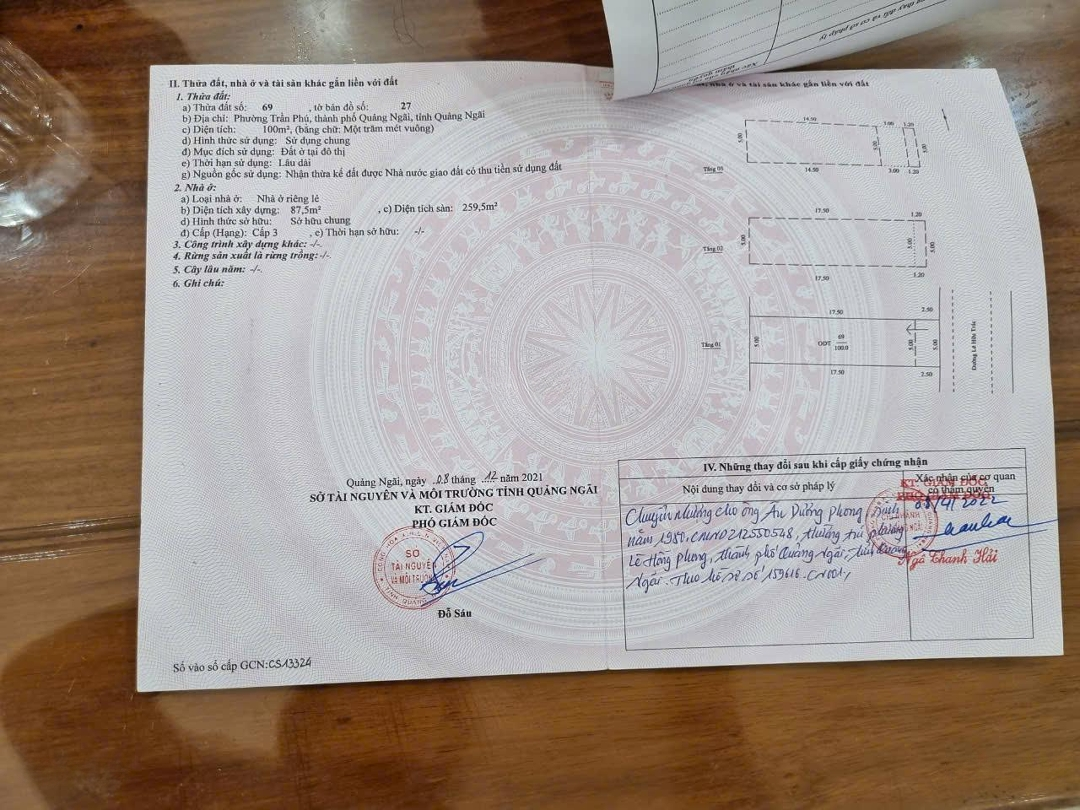 II. Thửa đất, nhà ở và tài sản khác gắn liền với đất
1. Thửa đất:
a) Thửa đất số: 69 , tờ bản đồ số: 27
b) Địa chỉ: Phường Trần Phú, thành phố Quảng Ngãi, tỉnh Quảng Ngãi
c) Diện tích: 100m², (bằng chữ: Một trăm mét vuông)
d) Hình thức sử dụng: Sử dụng chung
đ) Mục đích sử dụng: Đất ở tại đô thị
e) Thời hạn sử dụng: Lâu dài
g) Nguồn gốc sử dụng: Nhận thừa kế đất được Nhà nước giao đất có thu tiền sử dụng đất
2. Nhà ở:
a) Loại nhà ở: Nhà ở riêng lẻ
b) Diện tích xây dựng: 87,5m² , c) Diện tích sàn: 259,5m²
d) Hình thức sở hữu: Sở hữu chung
đ) Cấp (Hạng): Cấp 3 , e) Thời hạn sở hữu: -/-
3. Công trình xây dựng khác: -/-
4. Rừng sản xuất là rừng trồng: -/-
5. Cây lâu năm: -/-
6. Ghi chú:
Quảng Ngãi, ngày 08 tháng 12 năm 2021
SỞ TÀI NGUYÊN VÀ MÔI TRƯỜNG TỈNH QUẢNG NGÃI
KT. GIÁM ĐỐC
PHÓ GIÁM ĐỐC
SỞ
TÀI NGUYÊN
VÀ MÔI TRƯỜNG
Đỗ Sáu
Số vào sổ cấp GCN: CS13324
thay đổi và cơ sở pháp lý
nhà ở và tài sản khác gắn liền với đất
14.50 3.00 1.20
5.00 5.00 5.00
Tầng 03 14.50 3.00 1.20
17.50 1.20
5.00 5.00 5.00
Tầng 02
17.50 1.20
17.50 2.50
Tầng 01 5.00 ODT 69 5.00 5.00
100.0
17.50 2.50
Đường Lê Hữu Trác
IV. Những thay đổi sau khi cấp giấy chứng nhận
Nội dung thay đổi và cơ sở pháp lý
Xác nhận của cơ quan
có thẩm quyền
Chuyển nhượng cho ông An Dương Phong, sinh
năm 1980, CMND 212550548, thường trú phường
Lê Hồng Phong, thành phố Quảng Ngãi, tỉnh Quảng
Ngãi. Theo hồ sơ số 159616.CN001,
KT. GIÁM ĐỐC
PHÓ GIÁM ĐỐC
Ngã Thanh Hải